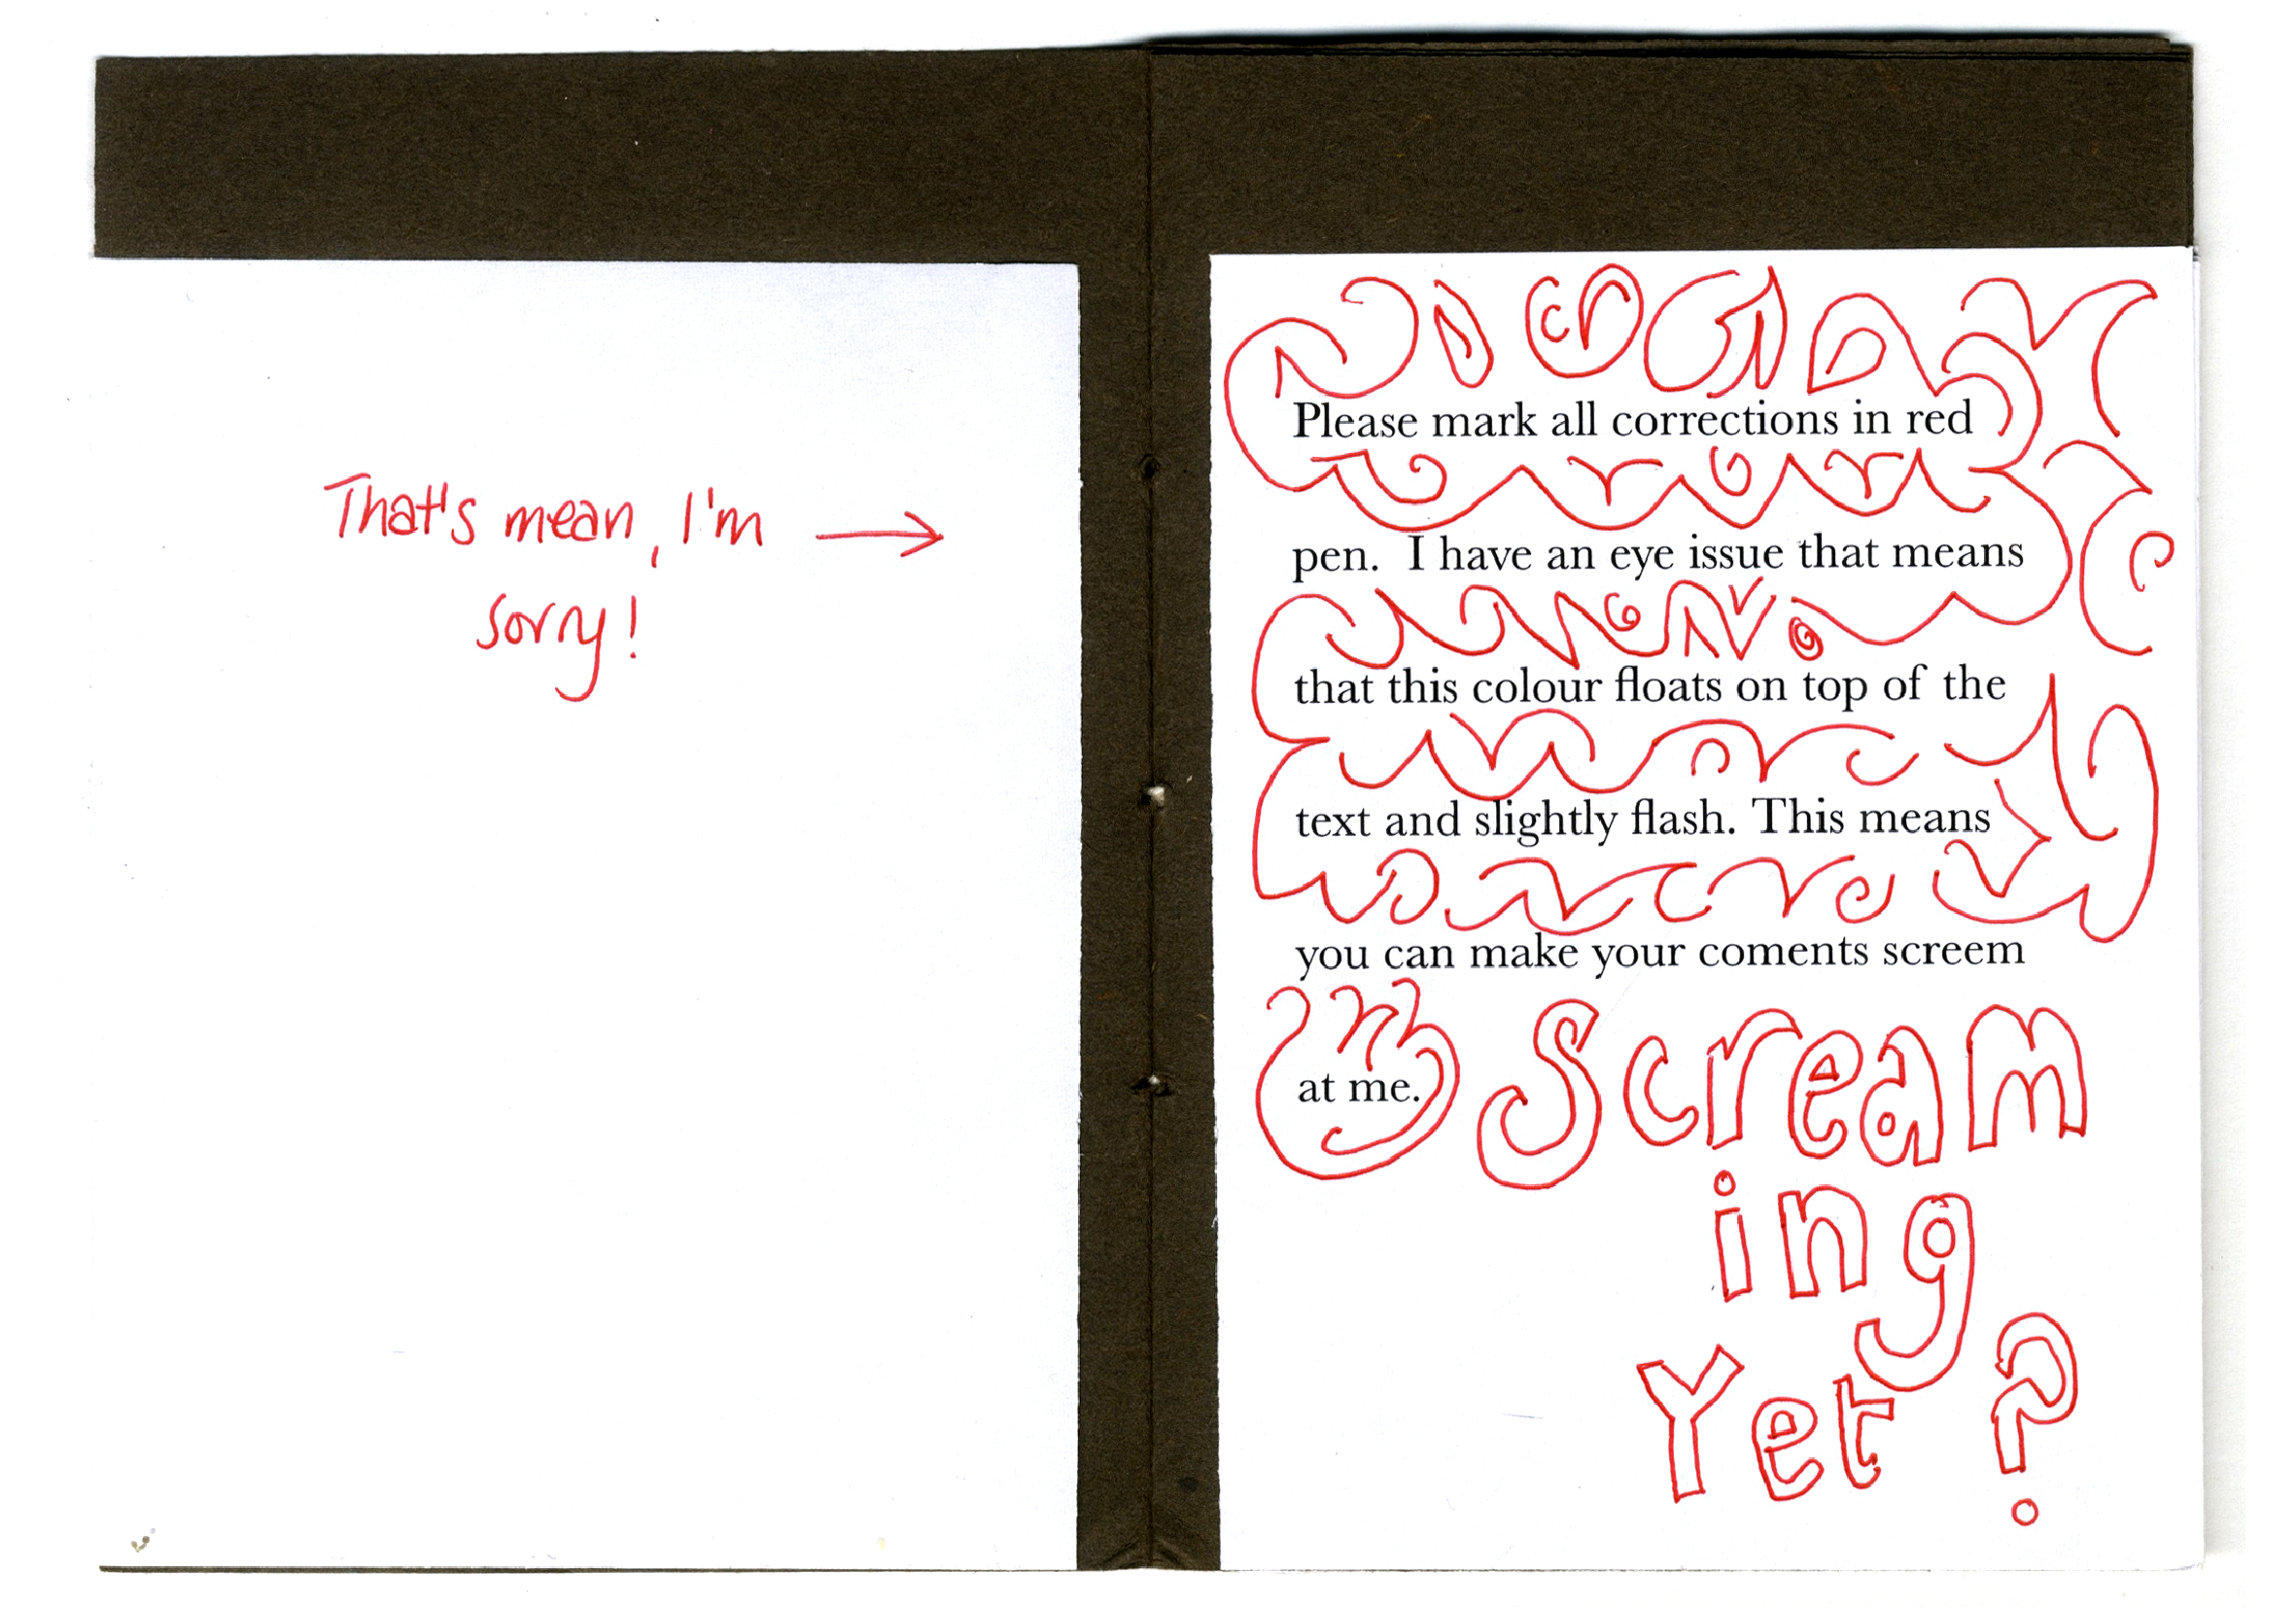 That's mean, I'm →
sorry!
Please mark all corrections in red
pen. I have an eye issue that means
that this colour floats on top of the
text and slightly flash. This means
you can make your coments screem
at me. Scream
ing
Yet?